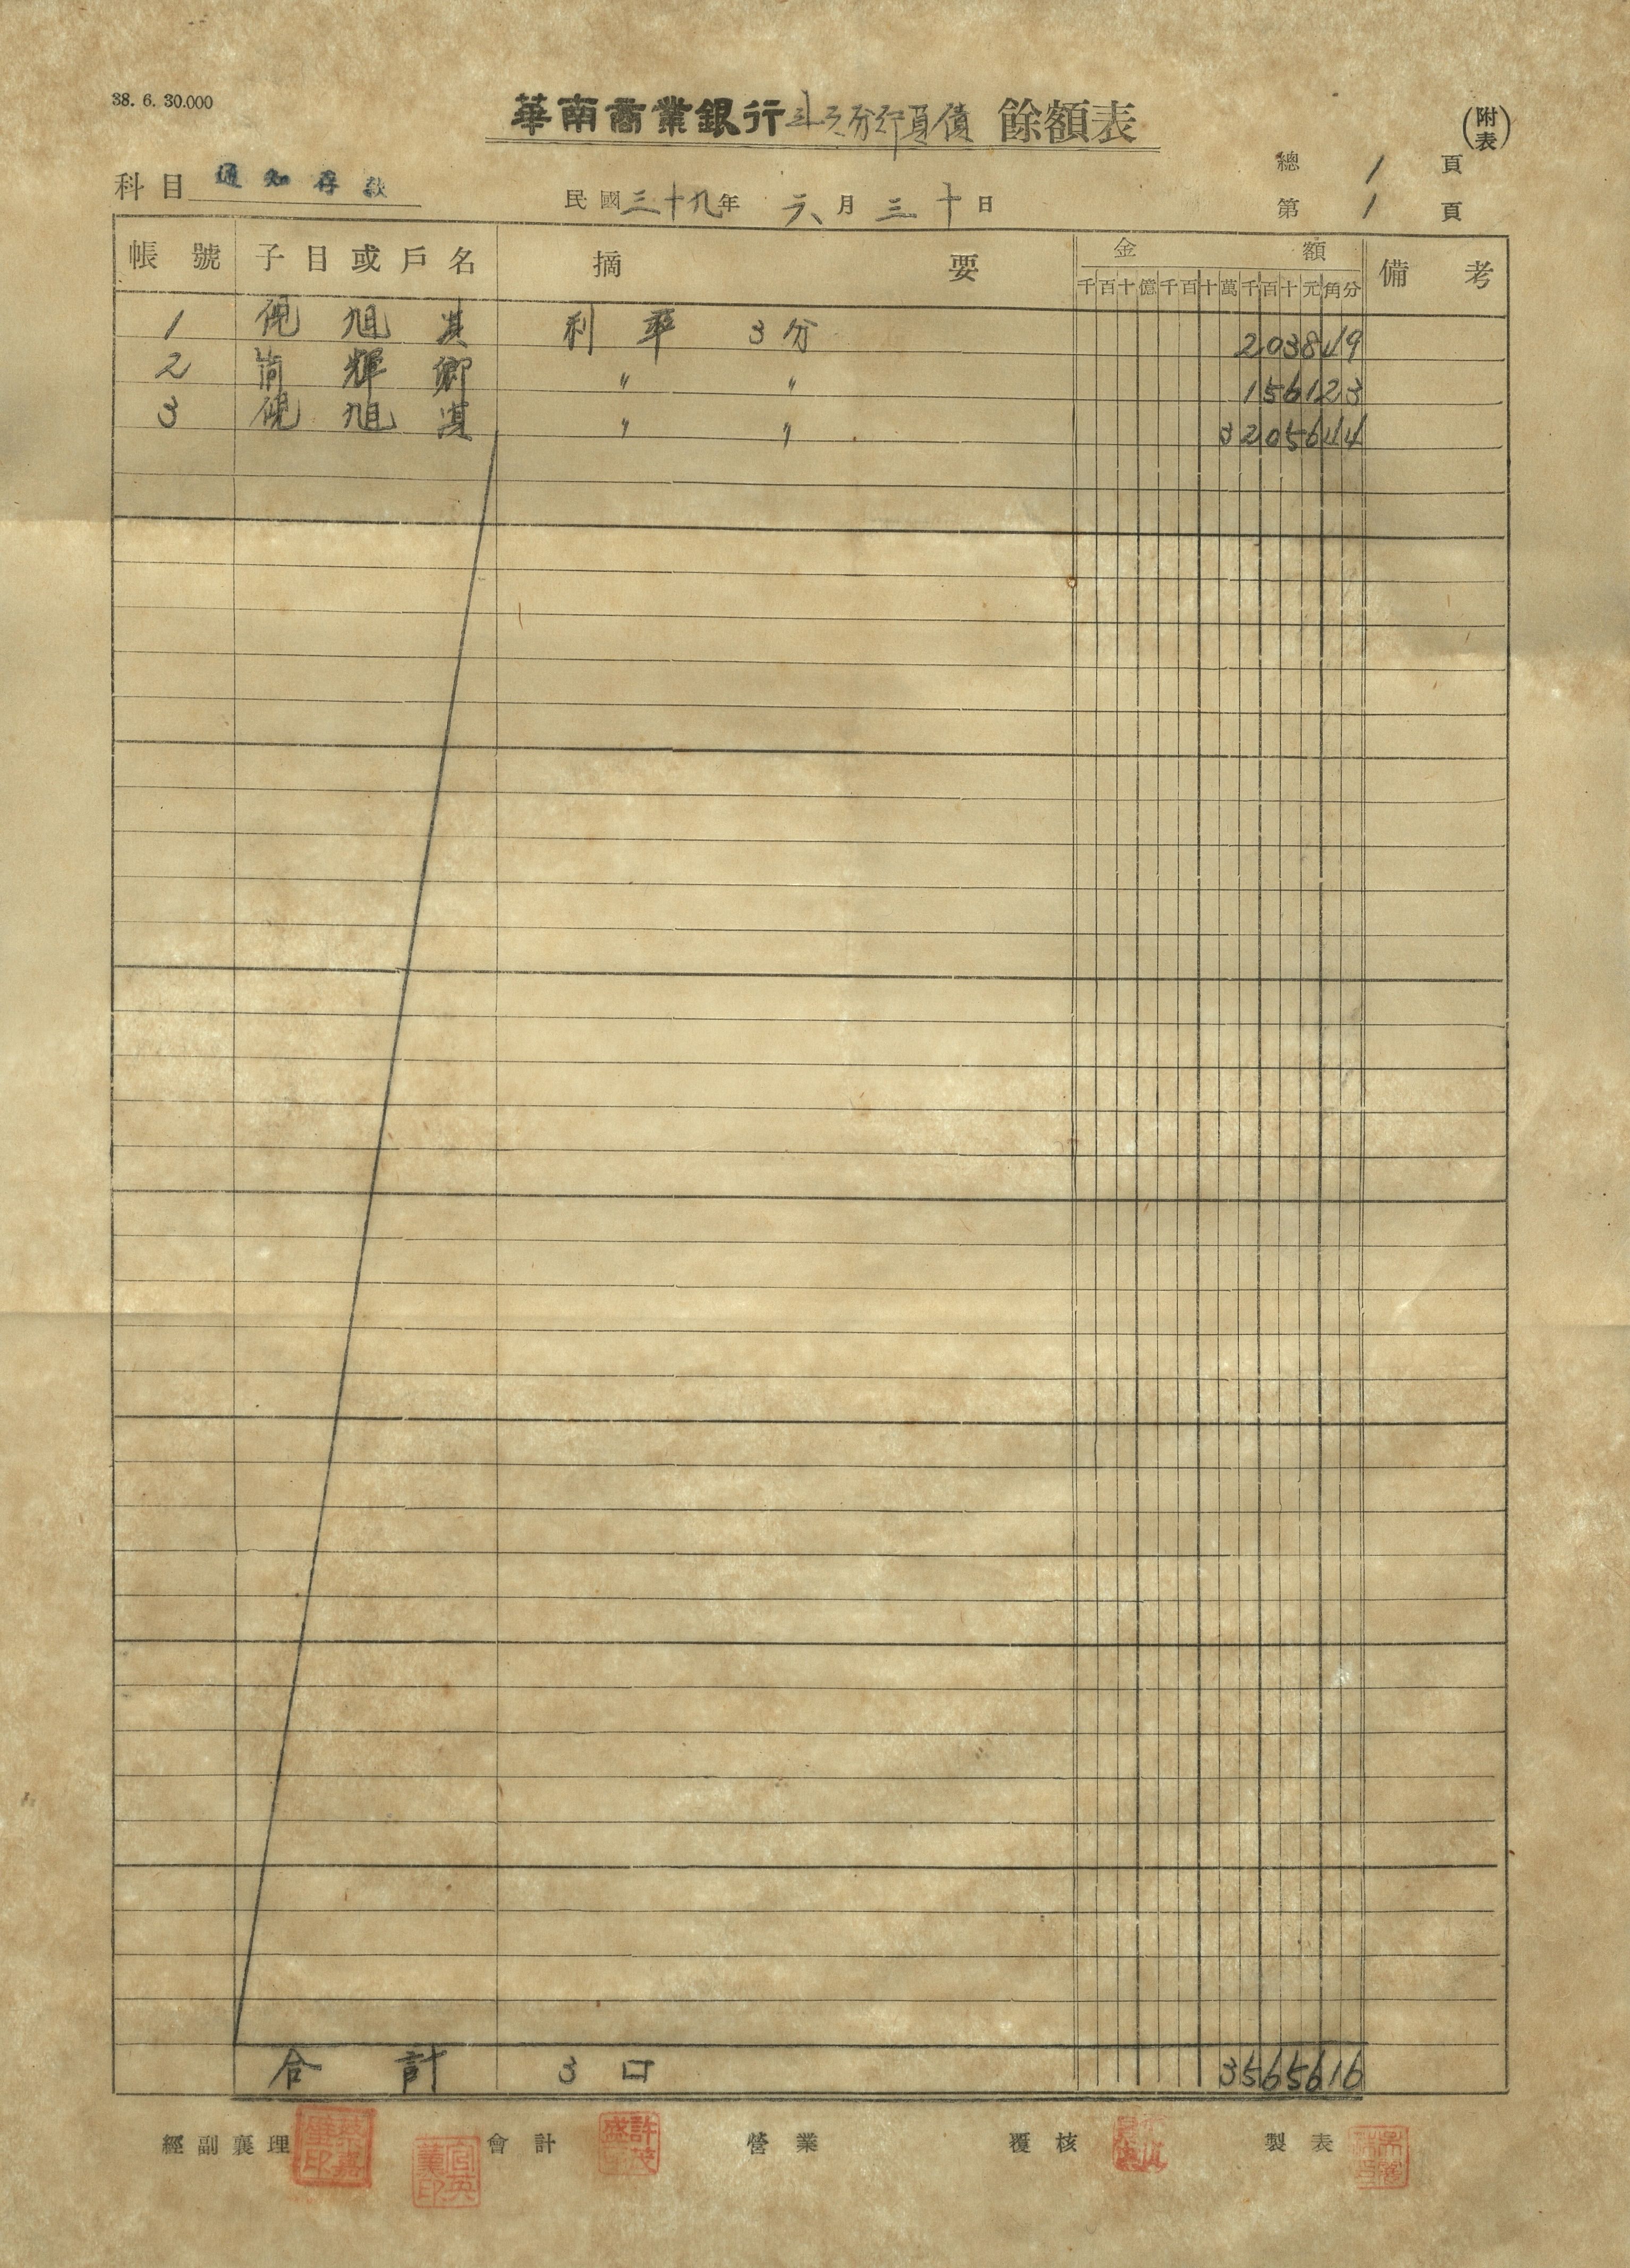 38. 6. 30.000
華南商業銀行斗六分行負債 餘額表
(附表)
科目 通知存款
民國三十九年 六月三十日
總 1 頁
第 1 頁
帳號 子目或戶名 摘要 金額 備考
千百十億千百十萬千百十元角分
1 旭 利率 3分 203849
2 輝卿 〃 〃 156123
3 旭 〃 〃 3205644
合計 3口 3565616
經副襄理 會計 許茂盛 營業 覆核 製表